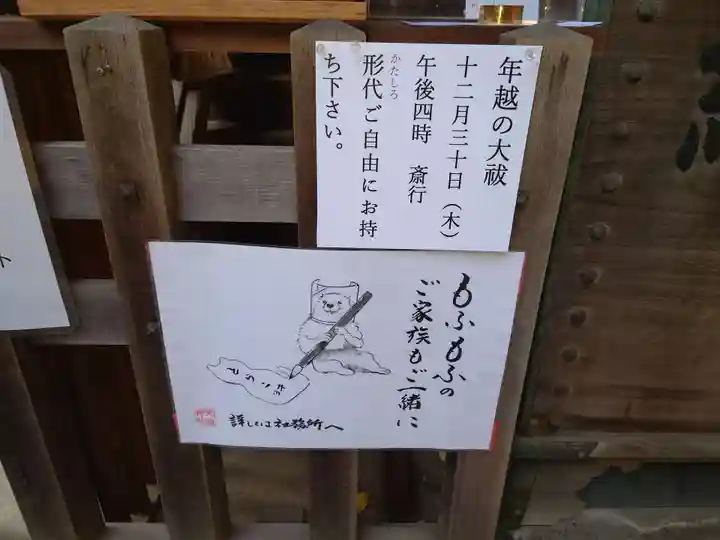 年越の大祓
十二月三十日(木)
午後四時 斎行
かたしろ
形代ご自由にお持
ち下さい。
もふもふの
ご家族もご一緒に
詳しくは社務所へ